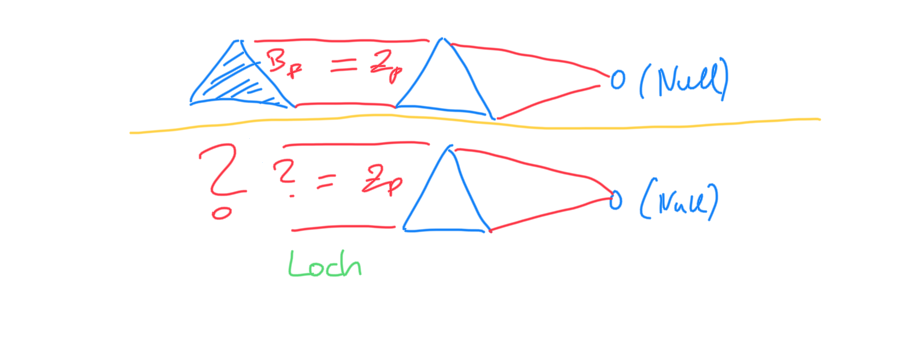 Bₚ = Zₚ 0 (Null)
? ? = Zₚ 0 (Null)
Loch